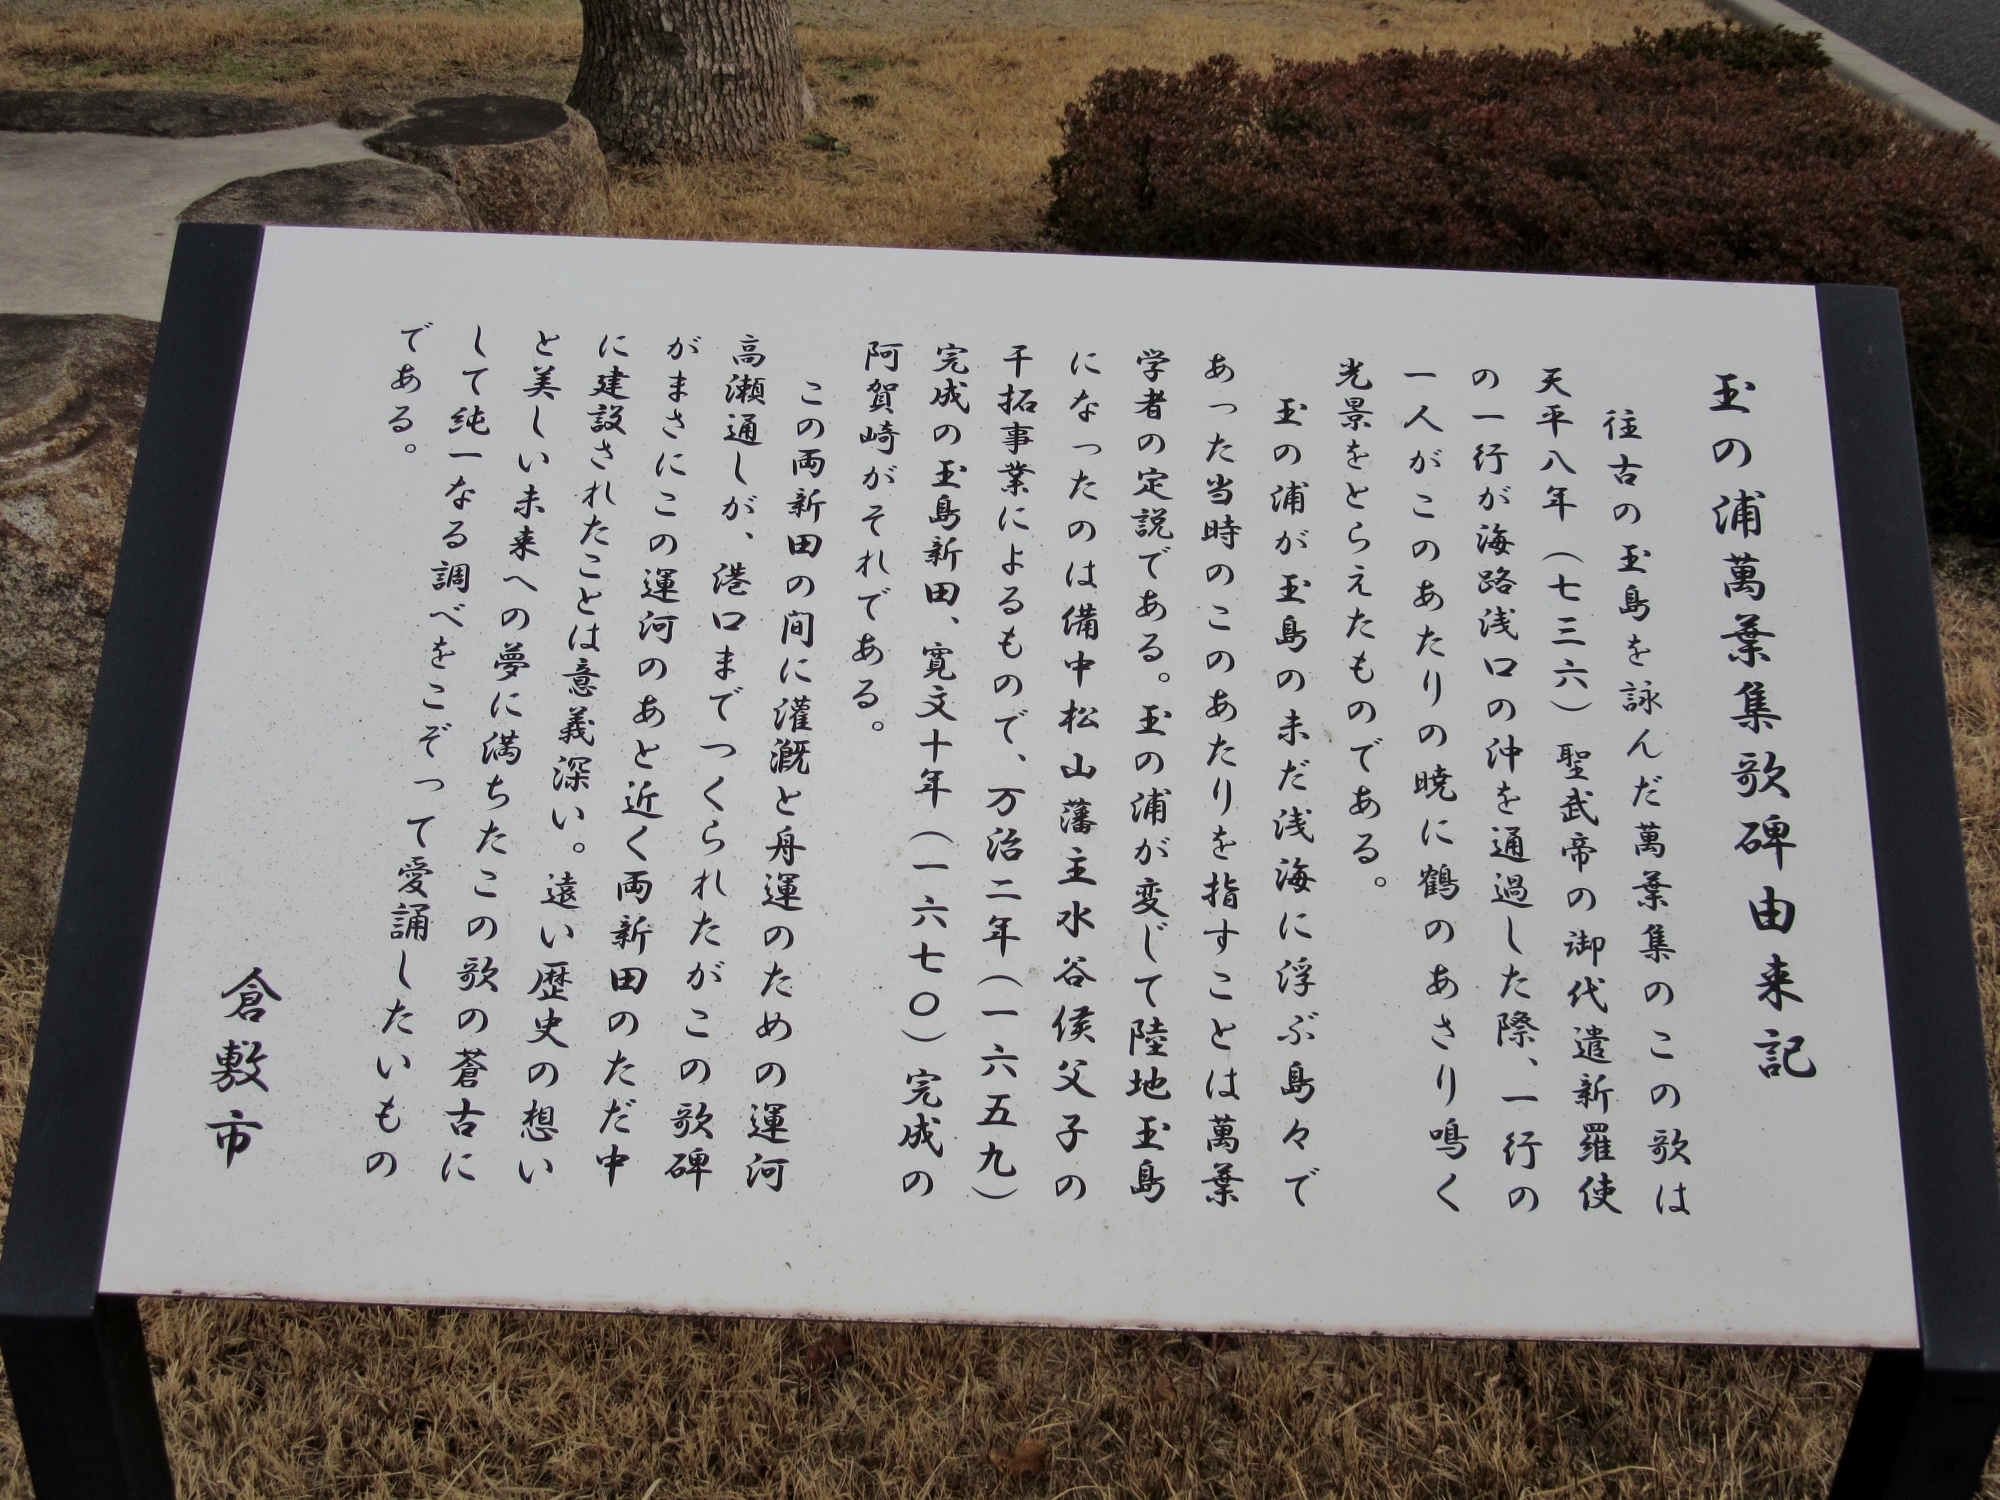 玉の浦萬葉集歌碑由来記
往古の玉島を詠んだ萬葉集のこの歌は
天平八年（七三六）聖武帝の御代遣新羅使
の一行が海路浅口の沖を通過した際、一行の
一人がこのあたりの暁に鶴のあさり鳴く
光景をとらえたものである。
玉の浦が玉島の未だ浅海に浮ぶ島々で
あった当時のこのあたりを指すことは萬葉
学者の定説である。玉の浦が変じて陸地玉島
になったのは備中松山藩主水谷侯父子の
干拓事業によるもので、万治二年（一六五九）
完成の玉島新田、寛文十年（一六七〇）完成の
阿賀崎がそれである。
この両新田の間に灌漑と舟運のための運河
高瀬通しが、港口までつくられたがこの歌碑
がまさにこの運河のあと近く両新田のただ中
に建設されたことは意義深い。遠い歴史の想い
と美しい未来への夢に満ちたこの歌の蒼古に
して純一なる調べをこぞって愛誦したいもの
である。
倉敷市